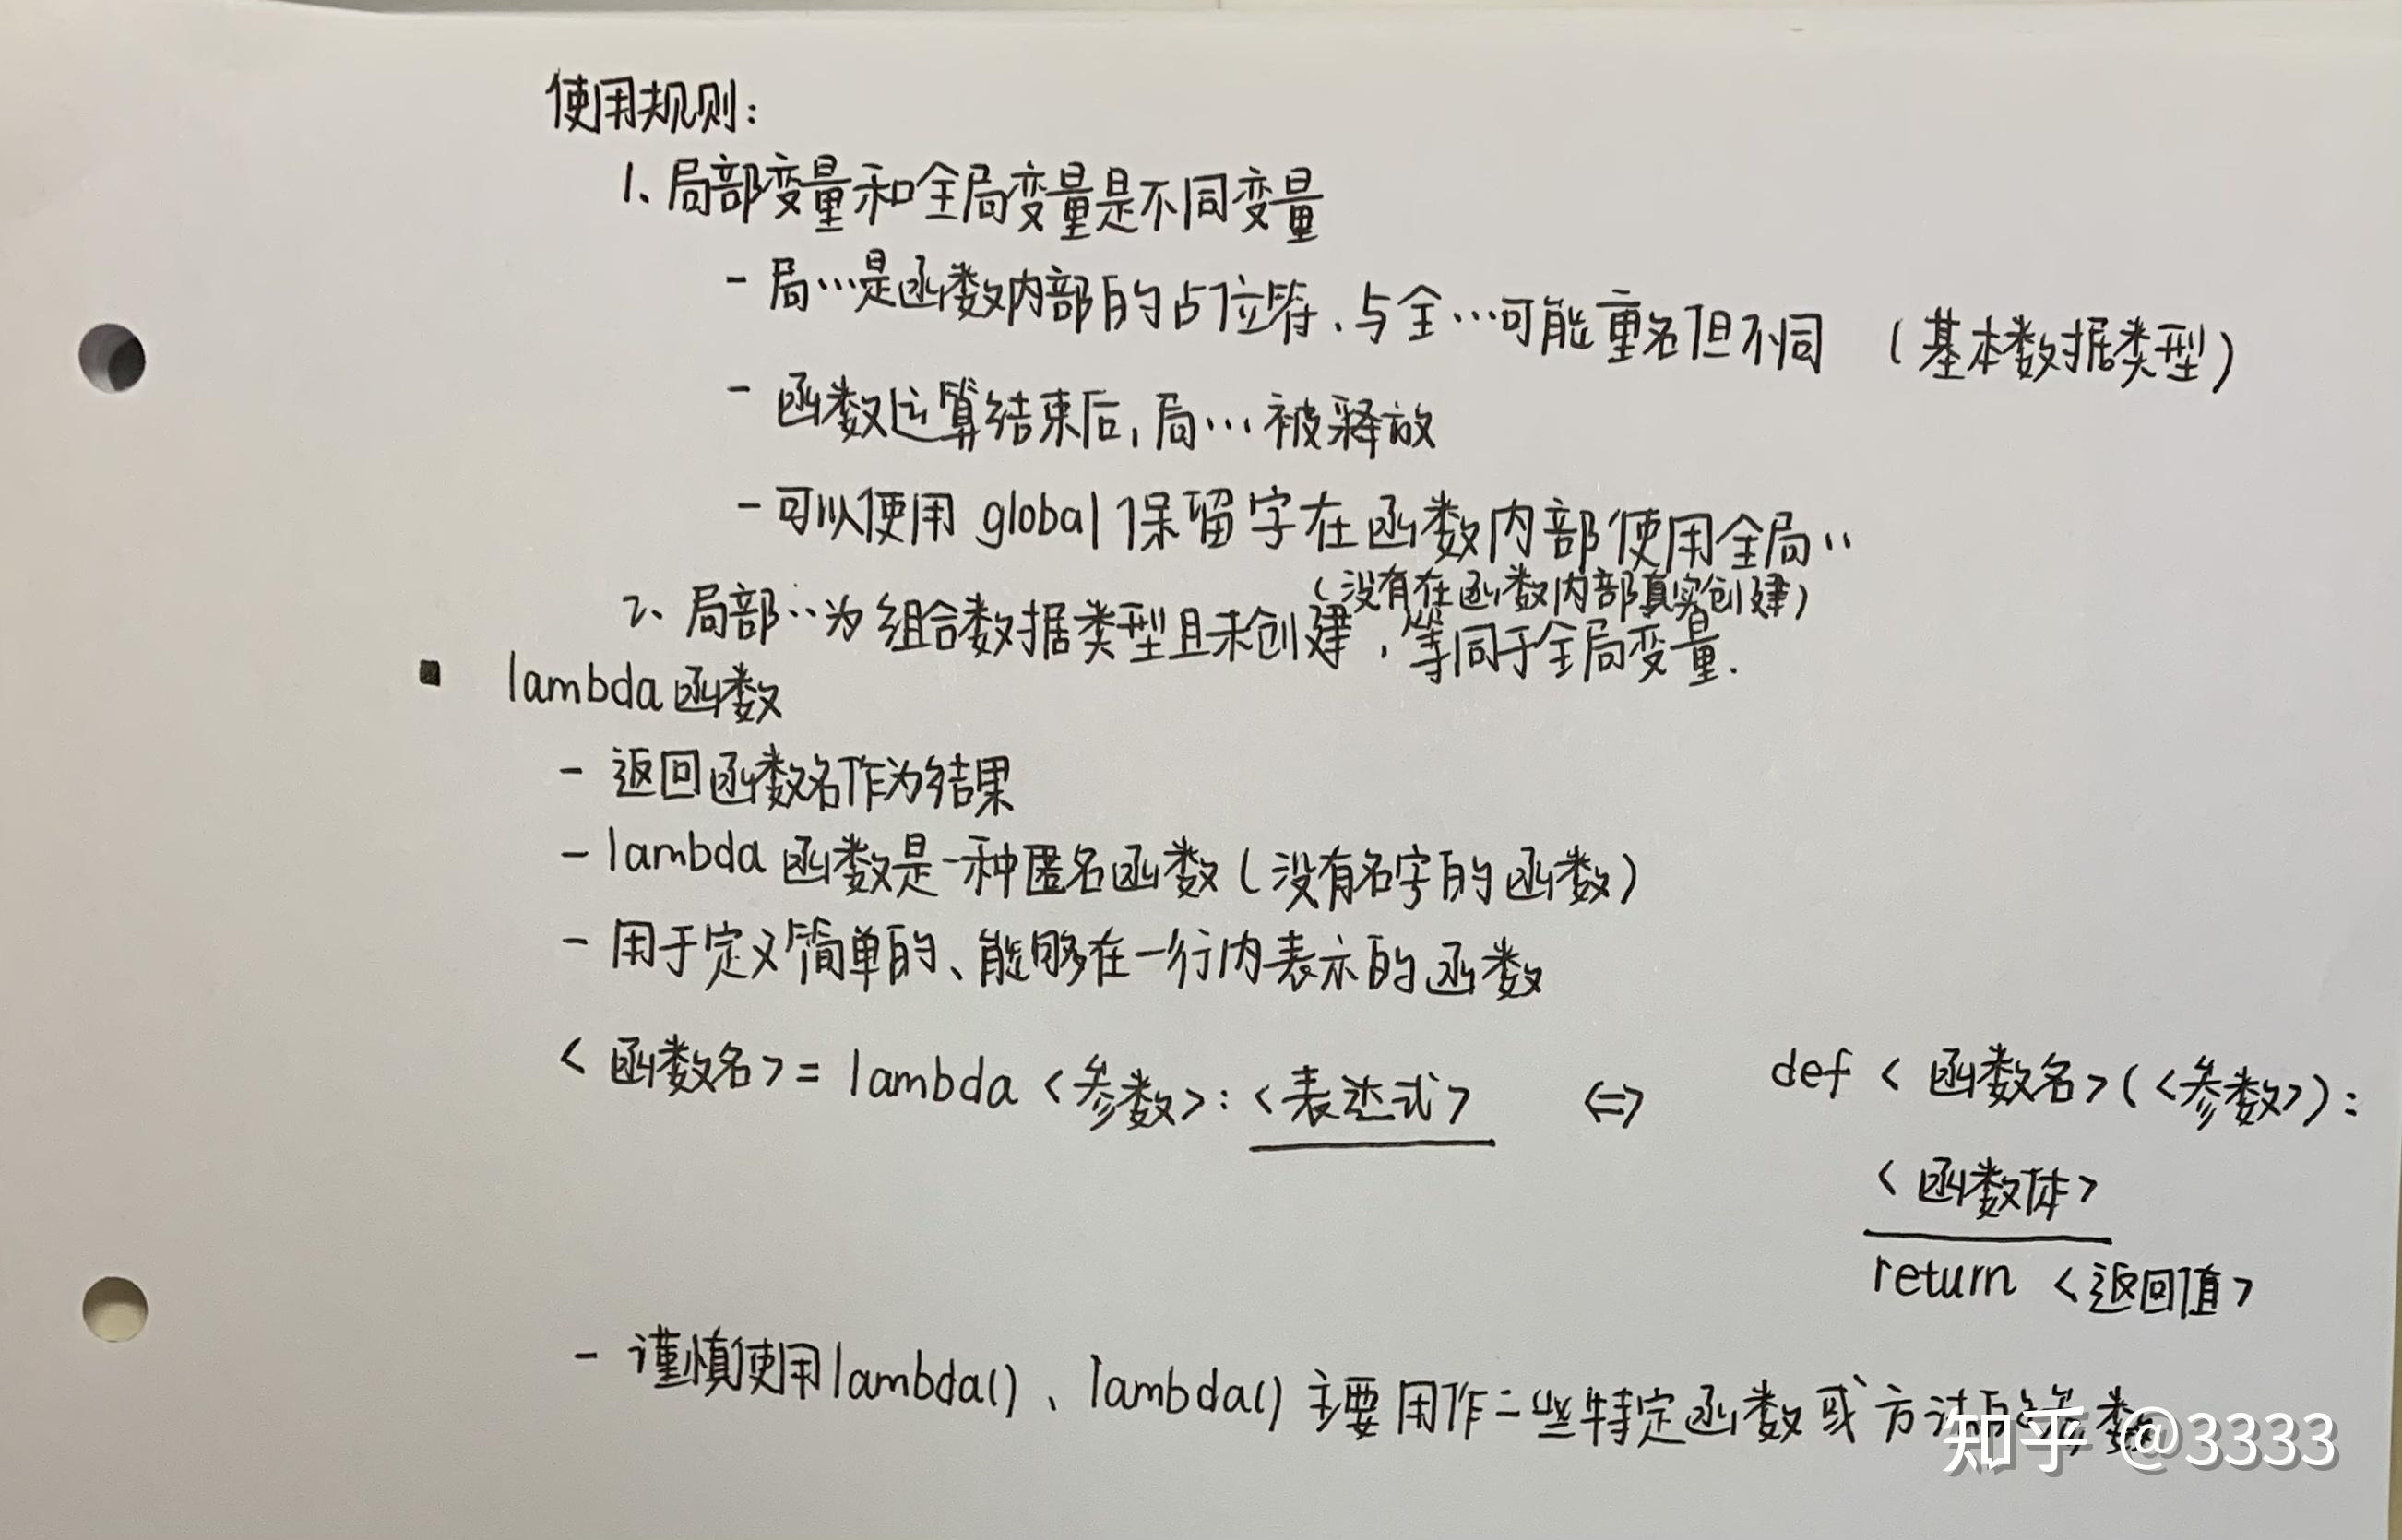 使用规则：
1、局部变量和全局变量是不同变量
- 局…是函数内部的占位符、与全…可能重名但不同 （基本数据类型）
- 函数运算结束后，局…被释放
- 可以使用 global 保留字在函数内部使用全局..
（没有在函数内部真实创建）
2、局部..为组合数据类型且未创建，等同于全局变量.
■ lambda函数
- 返回函数名作为结果
- lambda 函数是一种匿名函数（没有名字的函数）
- 用于定义简单的、能够在一行内表示的函数
<函数名> = lambda <参数>: <表达式> ⇔ def <函数名>(<参数>):
<函数体>
return <返回值>
- 谨慎使用lambda()、lambda() 主要用作一些特定函数或方法的参数
知乎 @3333